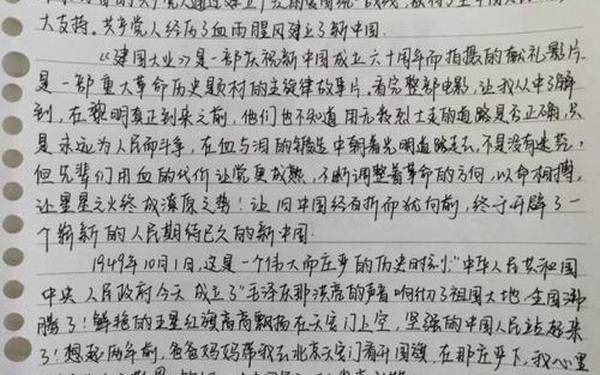 大支持。共产党人经历了血雨腥风建立了新中国。
《建国大业》是一部庆祝新中国成立六十周年而拍摄的献礼影片,
是一部重大革命历史题材的主旋律故事片。看完整部电影,让我从中了解
到,在黎明真正到来之前,他们也不知道用无数烈士走的道路是否正确,只
是永远为人民而斗争,在血与泪的锻造中朝着光明道路走去,不是没有迷茫,
但先辈们用血的代价让党更成熟,不断调整着革命的方向,以命相搏,
让星星之火终成燎原之势!让旧中国经百折而犹向前,终于开辟了一
个崭新的人民期待已久的新中国.
1949年10月1日,这是一个伟大而庄严的历史时刻:"中华人民共和国
中央人民政府今天成立了"毛泽东那洪亮的声音响彻了祖国大地,全国沸
腾了!鲜艳的五星红旗高高飘扬在天安门上空,坚强的中国人民站起来
了!想起两年前,爸爸妈妈带我去北京天安门看升国旗,在那庄严下,我心里